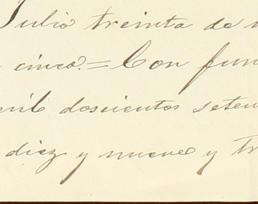 Julio treinta de
cinco.= Con fun
mil doscientos seten
diez y nueve y tr